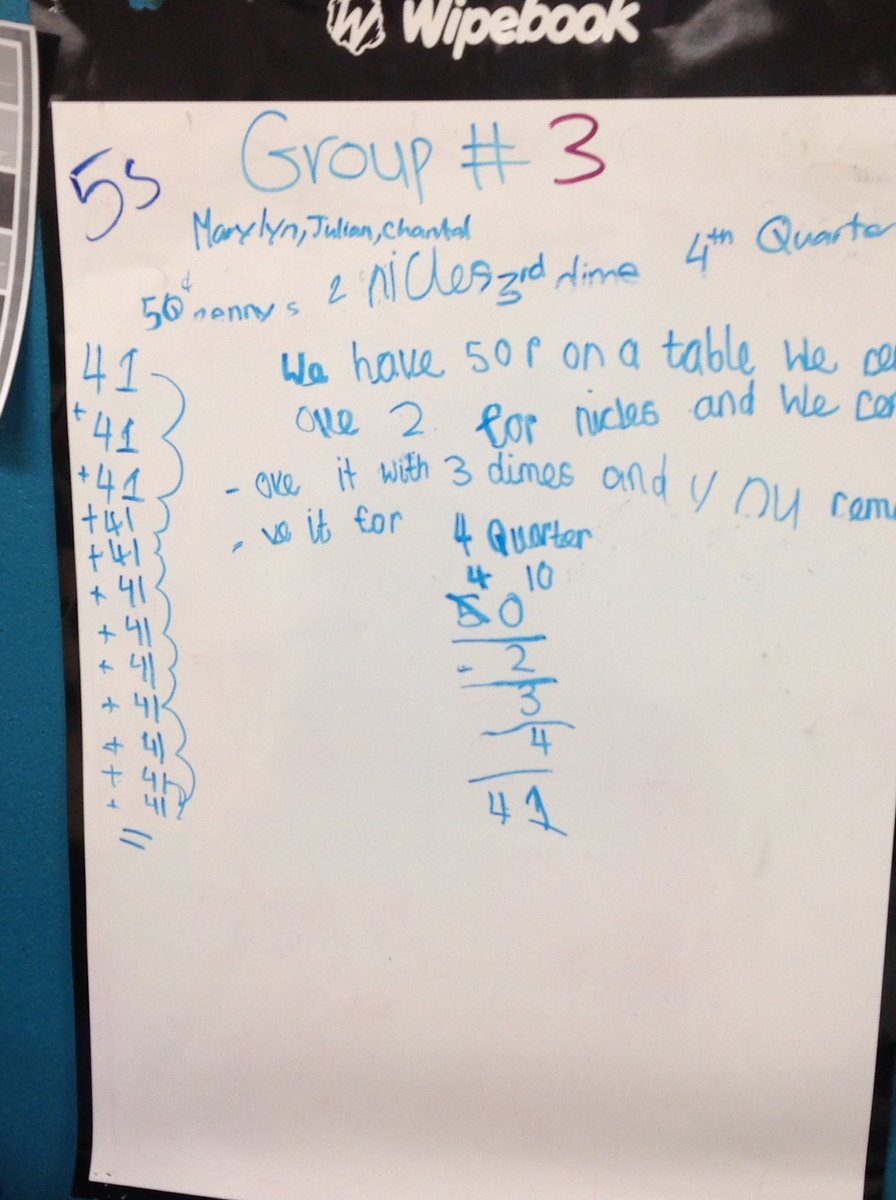 Wipebook
Group # 3
5s
Marylyn, Julian, Chantal
50¢ pennys 2 nicles 3rd dime 4th Quarter
We have 50 P on a table We rem
ove 2 for nicles and We rem
- ove it with 3 dimes and you rem
- ve it for 4 Quarter
4 10
50
- 2
3
4
41
41
+ 41
+ 41
+ 41
+ 41
+ 41
+ 41
+ 41
+ 41
+ 41
+ 41
+ 41
=